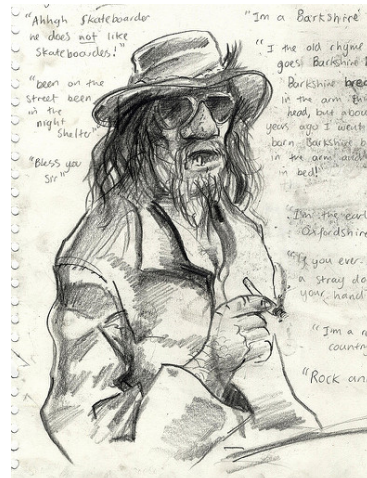 "Ahhgh Skateboarder
he does not like
Skateboardes!"
"been on the
street been
in the
night
Shelter"
"Bless you
Sir"
"Im a Barkshire
"I the old rhyme
goes! Barkshire
Barkshire
in the arm
head, but
years ago I went
born Barkshire
in the arm and
in bed!"
"I'm the
Oxfordshire
you ever
a stray
your hand
"I'm a
"Rock